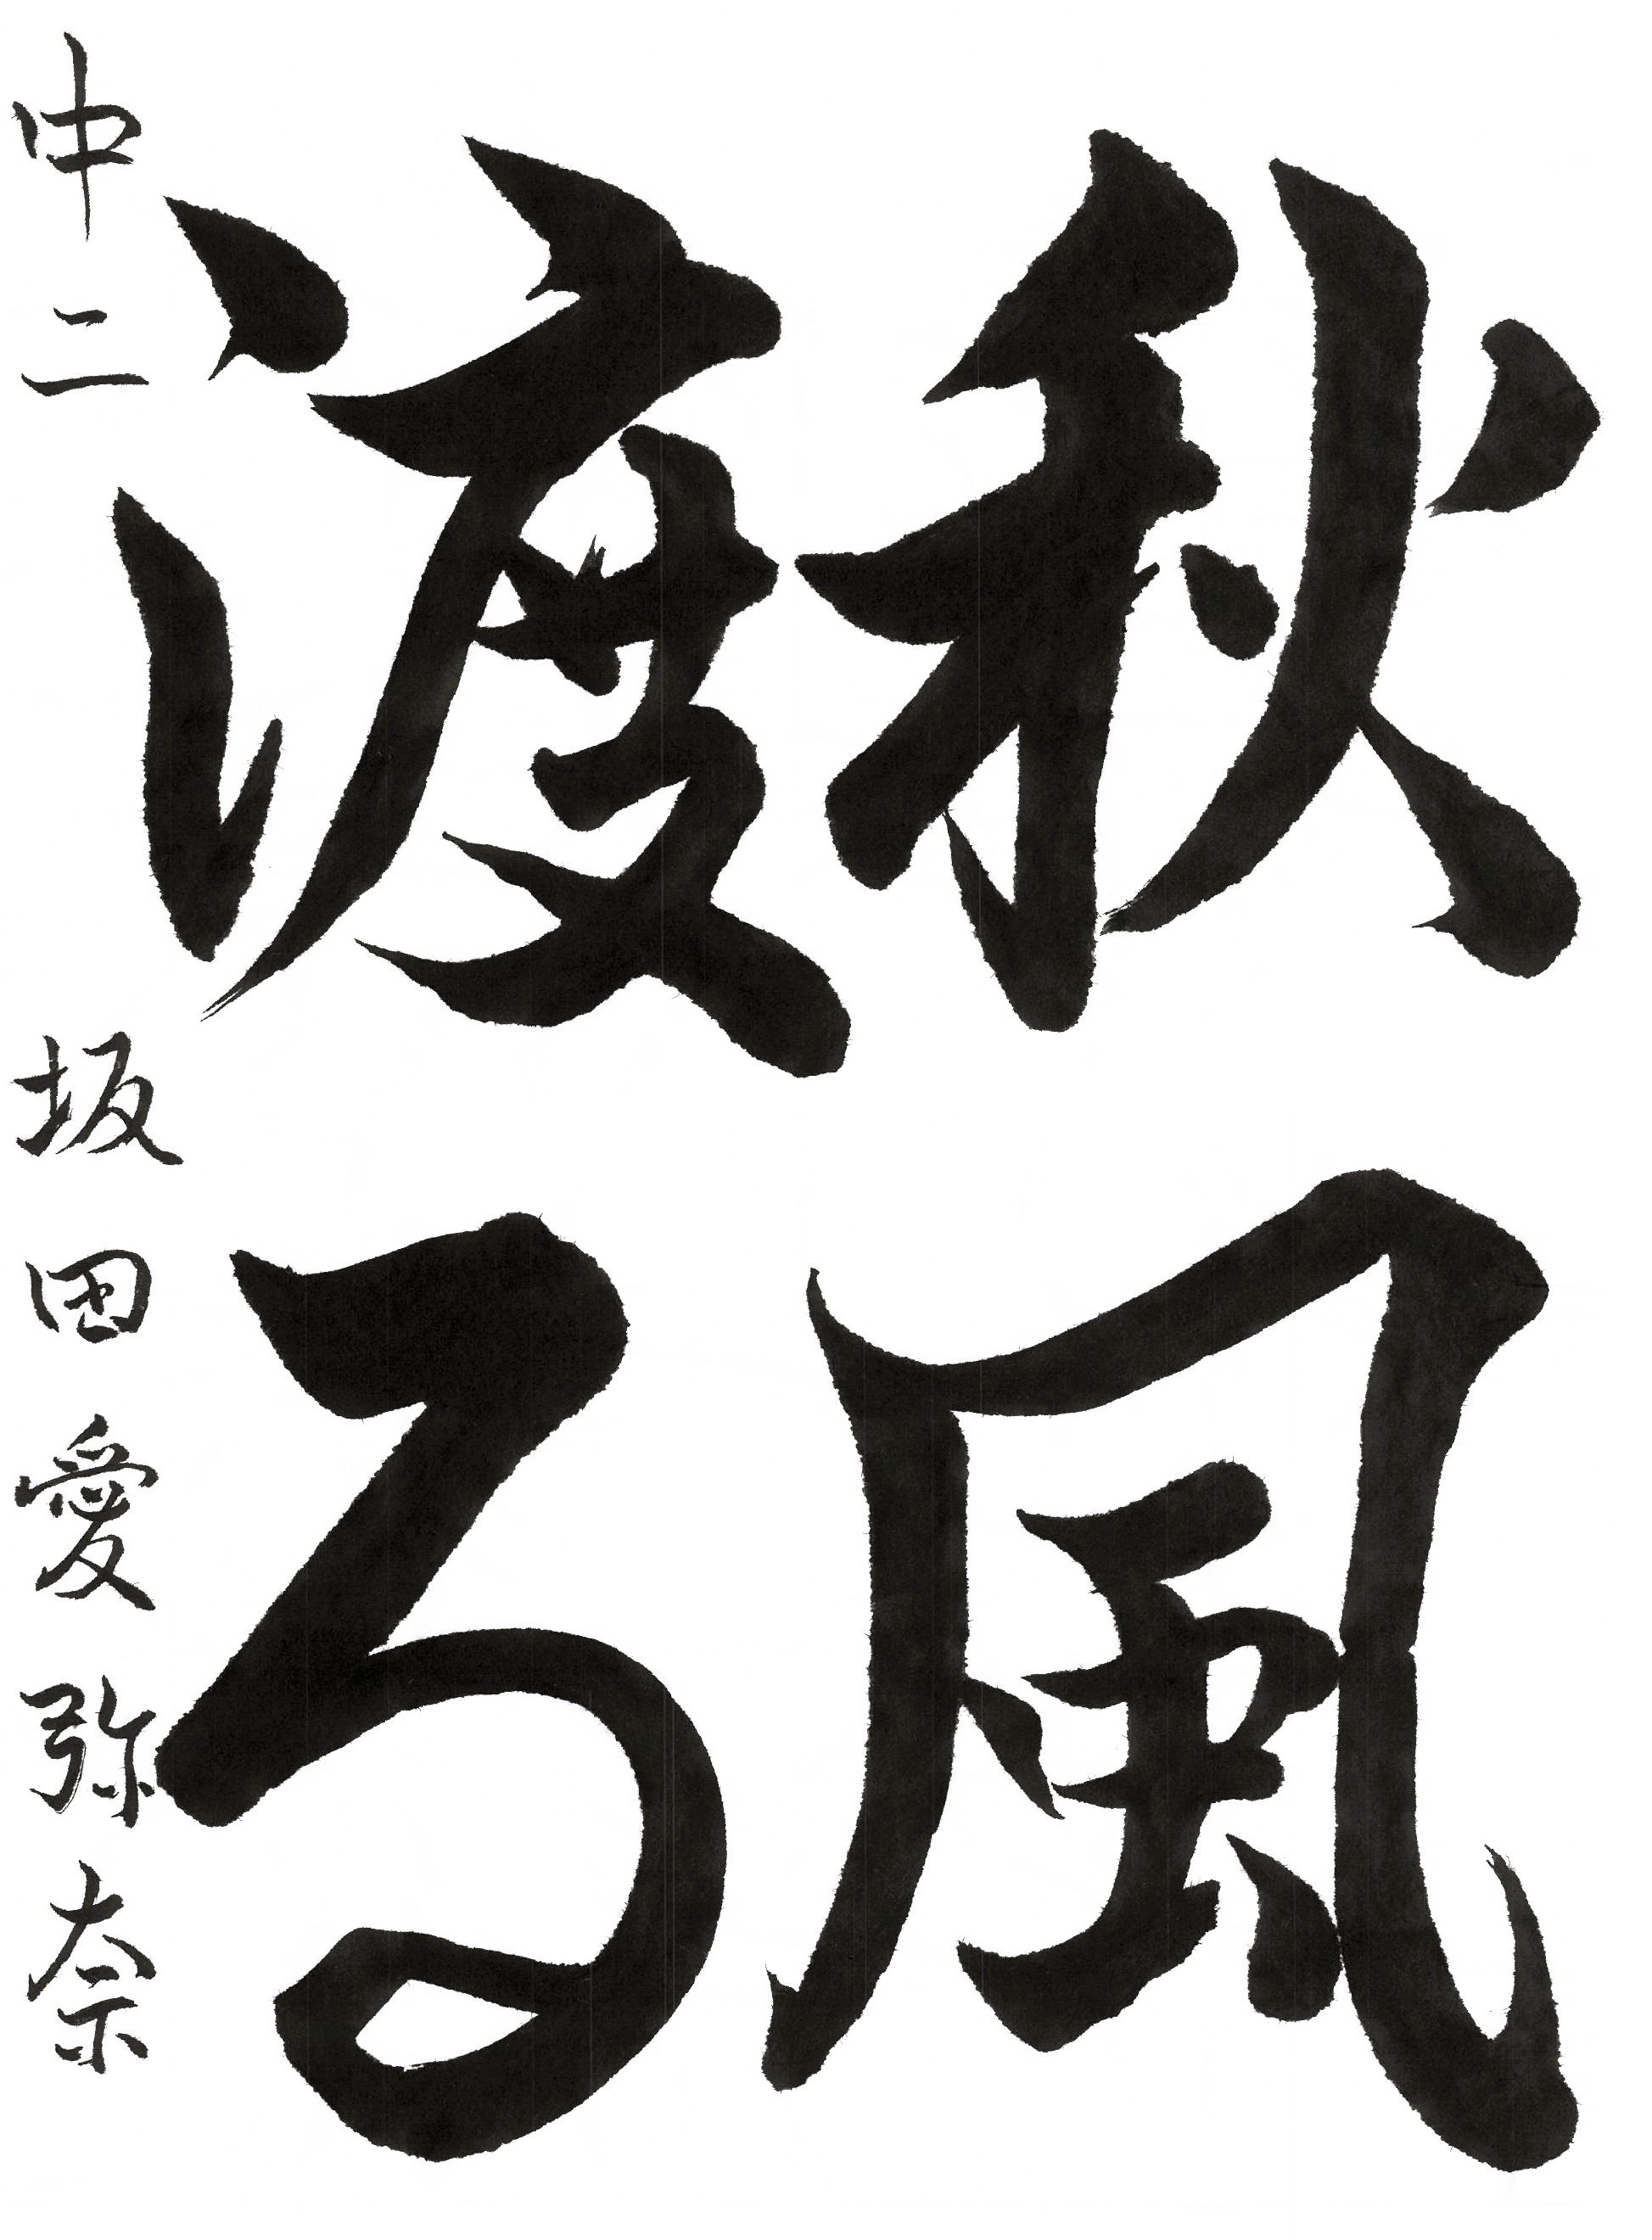 秋風
渡る
中二 坂田愛弥奈